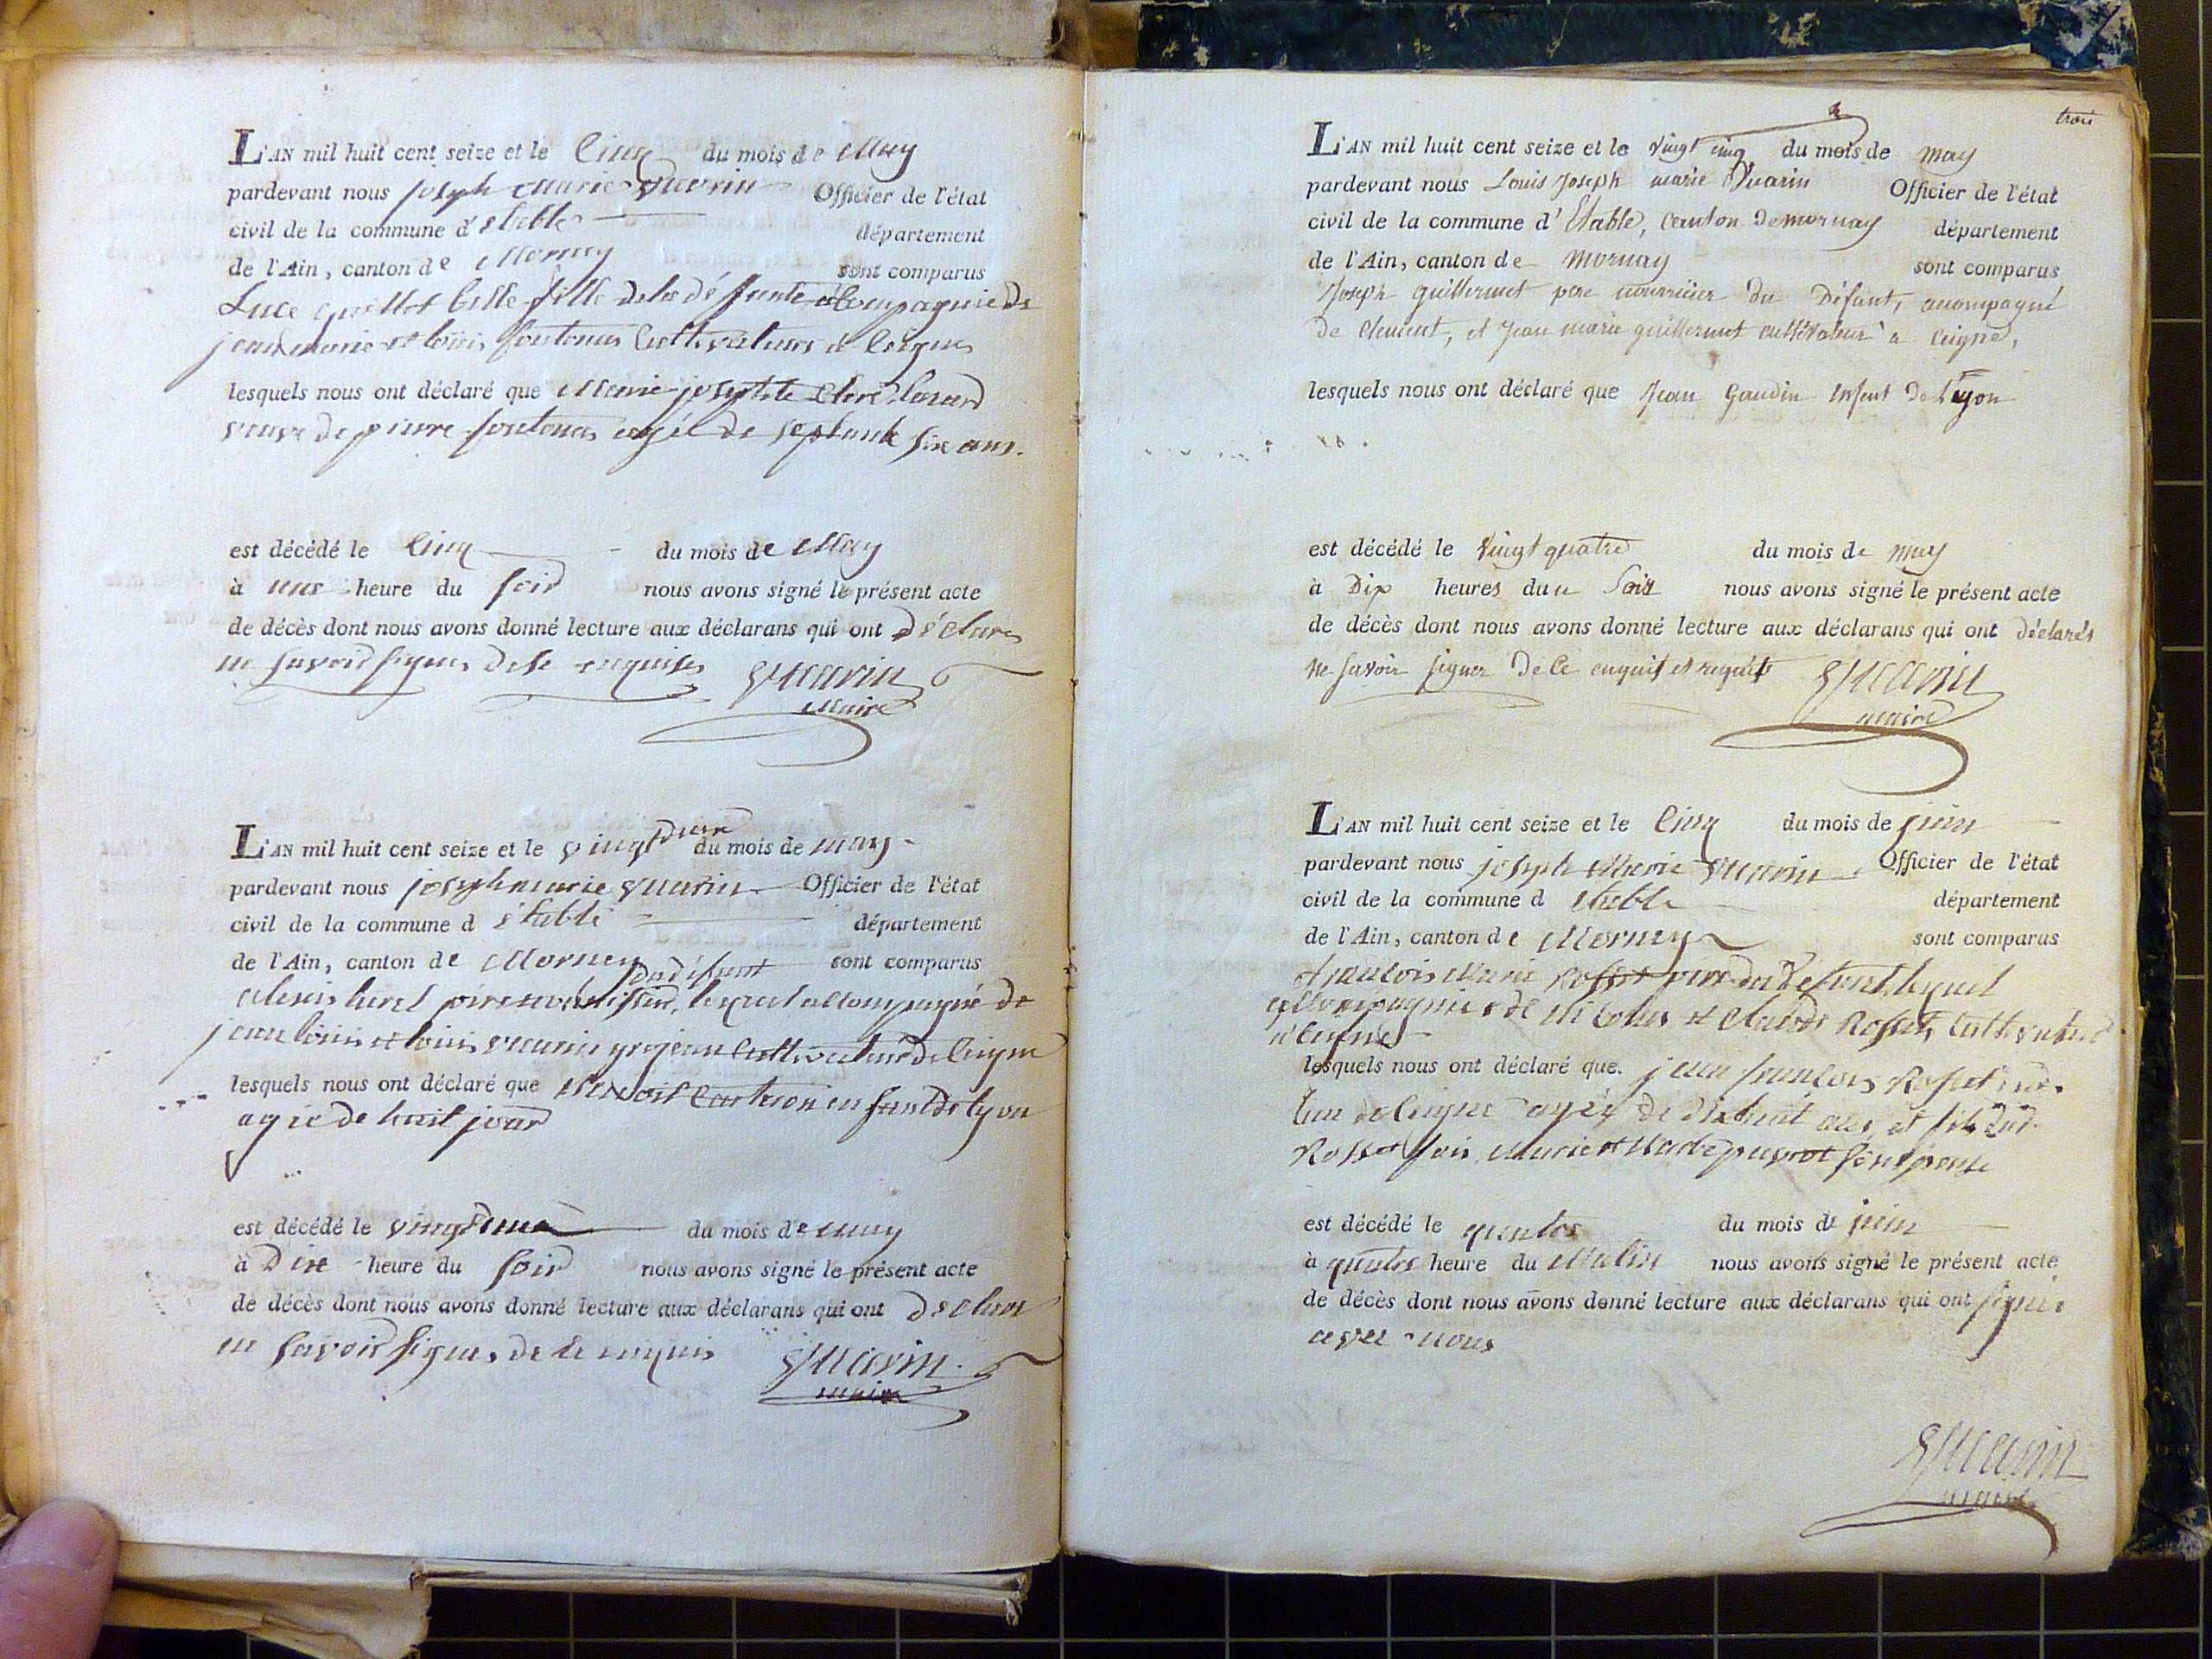 L'AN mil huit cent seize et le Cinq du mois de May
pardevant nous joseph Marie Vuarin Officier de l'état
civil de la commune d'etable département
de l'Ain, canton de Mornay sont comparus
Luce guillot belle fille de la défunte compagnie de
jean marie et loüis foutenas Cultivateurs a Ceignes
lesquels nous ont déclaré que Marie josephte
veuve de pierre foutenas agée de septante six ans.
est décédé le Cinq du mois de May
à une heure du soir nous avons signé le présent acte
de décès dont nous avons donné lecture aux déclarans qui ont déclares
ne savoir signer de se enquises Vuarin
Maire
L'AN mil huit cent seize et le vingt deux du mois de may
pardevant nous joseph marie Vuarin Officier de l'état
civil de la commune d'étable département
de l'Ain, canton de Mornay sont comparus
du défunt
alexis père nourissier, lequel accompagné de
jean loüis et loüis vuarin cultivateur de Ceigne
lesquels nous ont déclaré que benoit enfant de lyon
agée de huit jour
est décédé le vingt deux du mois de may
à Dix heure du soir nous avons signé le présent acte
de décès dont nous avons donné lecture aux déclarans qui ont déclare
ne savoir signer de ce enquis Vuarin
maire
trois
L'AN mil huit cent seize et le vingt cinq du mois de may
pardevant nous Louis Joseph marie Vuarin Officier de l'état
civil de la commune d'Etable, canton de mornay département
de l'Ain, canton de Mornay sont comparus
Joseph guillermet pere nourricier du Défunt, acompagné
de Clement, et Jean marie guillermet cultivateur a Ceigne,
lesquels nous ont déclaré que Jean Gaudin enfent de Liyon
est décédé le vingt quatre du mois de may
à Dix heures du Soir nous avons signé le présent acte
de décès dont nous avons donné lecture aux déclarans qui ont déclarés
ne savoir signer de Ce enquis et requis Vuarin
maire
L'AN mil huit cent seize et le Cinq du mois de juin
pardevant nous joseph Marie Vuarin Officier de l'état
civil de la commune d etable département
de l'Ain, canton de Mornay sont comparus
françois Marie Rosset père du Défunt, lequel
accompagniée de nicolas et Claude Rosset, Cultivateur
a Ceigne
lesquels nous ont déclaré que jean françois Rosset
de Ceigne agée de dixhuit ans et fils de
Rosset fois Marie et
est décédé le quatre du mois de juin
à quatre heure du Matin nous avons signé le présent acte
de décès dont nous avons donné lecture aux déclarans qui ont signé
avec nous
Vuarin
maire